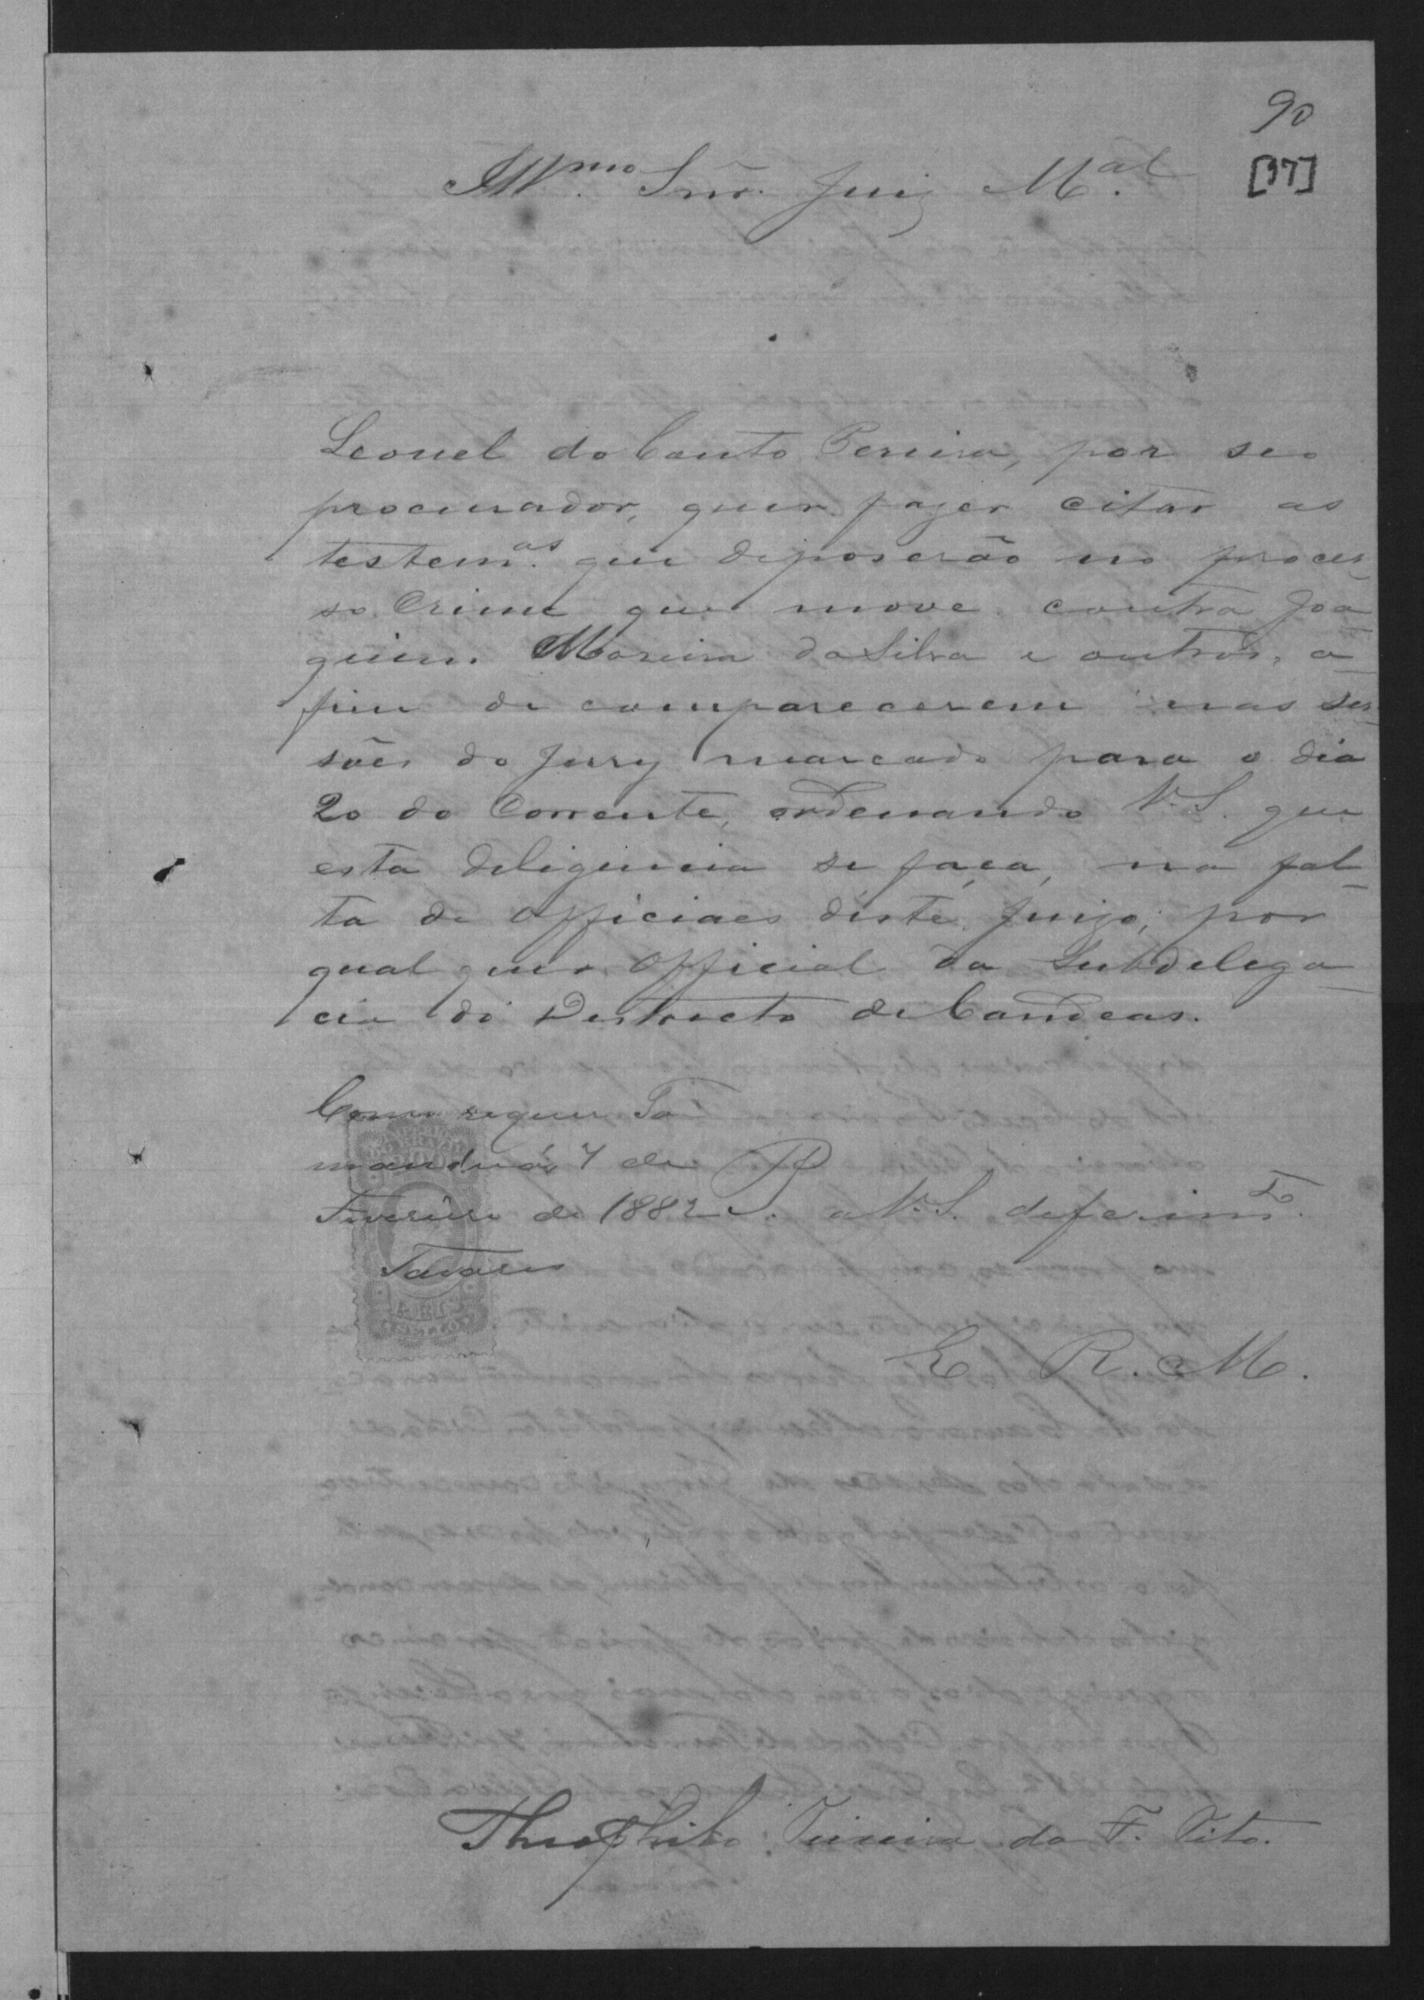 90
[37]
Illmo. Snr. Juiz Mal.
Leonel do Canto Pereira, por seo
procurador, quer fazer citar as
testemas. que deposerão no proces-
so Crime que move contra Joa-
quim Moreira da Silva e outros, a-
fim de comparecerem nas ses-
sões do Jury marcado para o dia
20 do Corrente, ordenando V. S. que
esta deligencia se faça, na fal-
ta de Officiaes deste Juizo, por
qual quer Official da Subdelega-
cia do Destricto de Candeas.
Como requer Ta-
manduá, 7 de
Fevereiro de 1882.
Tavares
P.
a V. S. deferimto.
E. R. M.
Theophilo Teixeira da F. Tito.